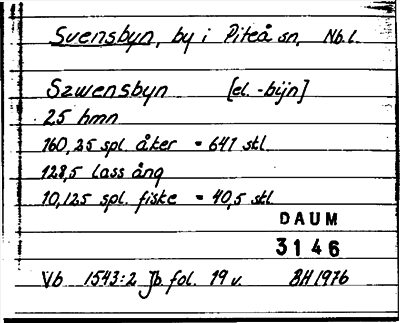 Svensbyn, by i Piteå sn, Nb.l.
Szwensbyn [el. -bijn]
25 hmn
160,25 spl. åker = 641 skl.
128,5 lass äng
10,125 spl. fiske = 40,5 skl.
DAUM
3146
Vb 1543:2 Jb. fol. 19 v. BH 1976